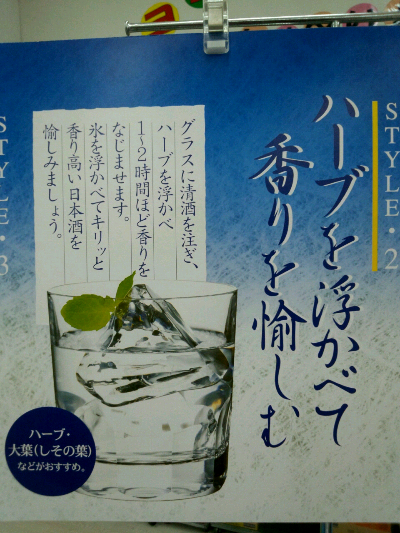 STYLE・2
ハーブを浮かべて
香りを愉しむ
グラスに清酒を注ぎ、
ハーブを浮かべ
1~2時間ほど香りを
なじませます。
氷を浮かべてキリッと
香り高い日本酒を
愉しみましょう。
ハーブ・
大葉(しその葉)
などがおすすめ。
STYLE・3